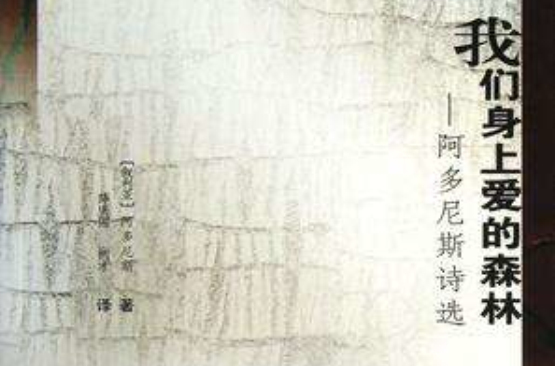 我们身上爱的森林
——阿多尼斯诗选
[叙利亚] 阿多尼斯 著
译